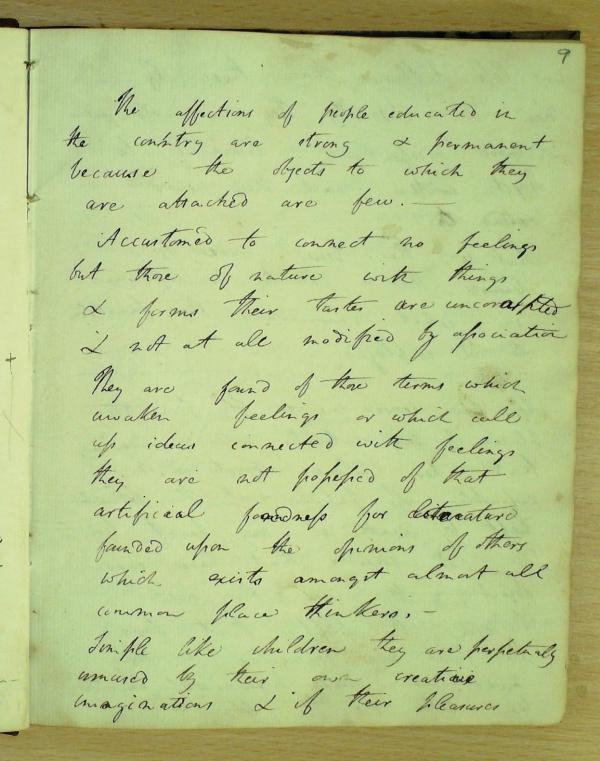 9
The affections of people educated in
the country are strong & permanent
because the objects to which they
are attached are few. —
Accustomed to connect no feelings
but those of nature with things
& forms their tastes are uncorrupted
& not at all modified by association
They are found of those terms which
awaken feelings or which call
up ideas connected with feelings
they are not possessed of that
artificial fondness for literature
founded upon the opinions of others
which exists amongst almost all
common place thinkers. —
Simple like children they are perpetualy
amused by their own creative
imaginations & if their pleasures